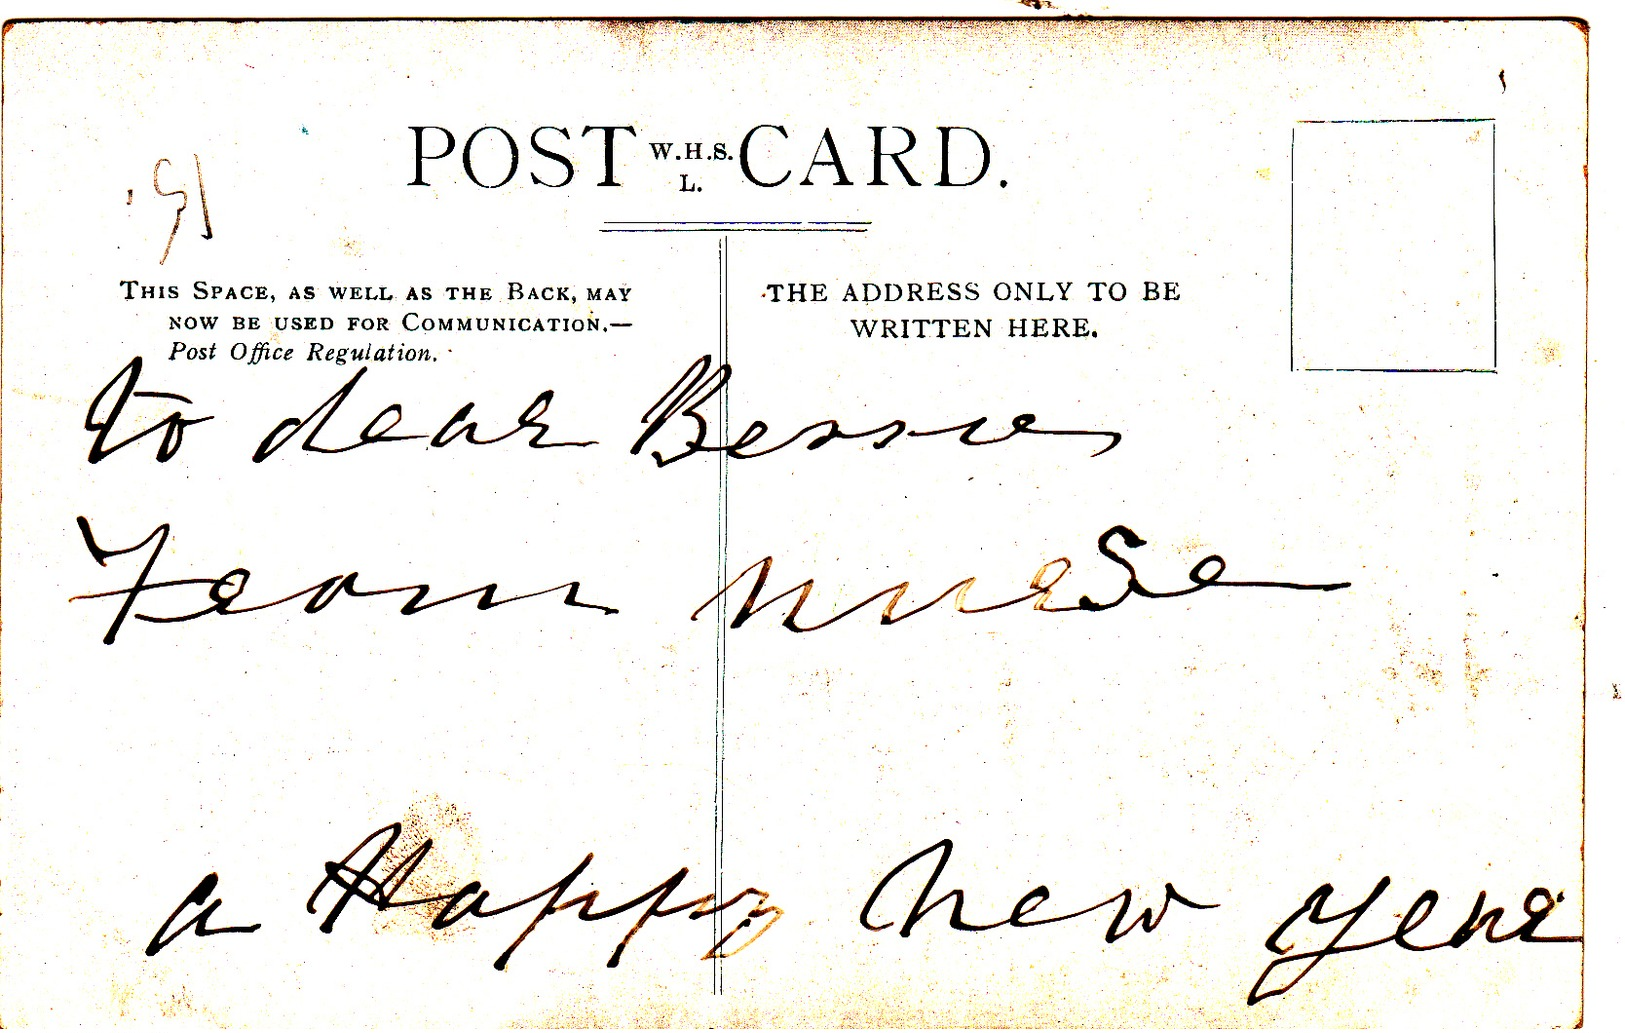 POST W.H.S. L. CARD.
THIS SPACE, AS WELL AS THE BACK, MAY
NOW BE USED FOR COMMUNICATION.—
Post Office Regulation.
THE ADDRESS ONLY TO BE
WRITTEN HERE.
To dear Bessie
From nurse
a Happy new year